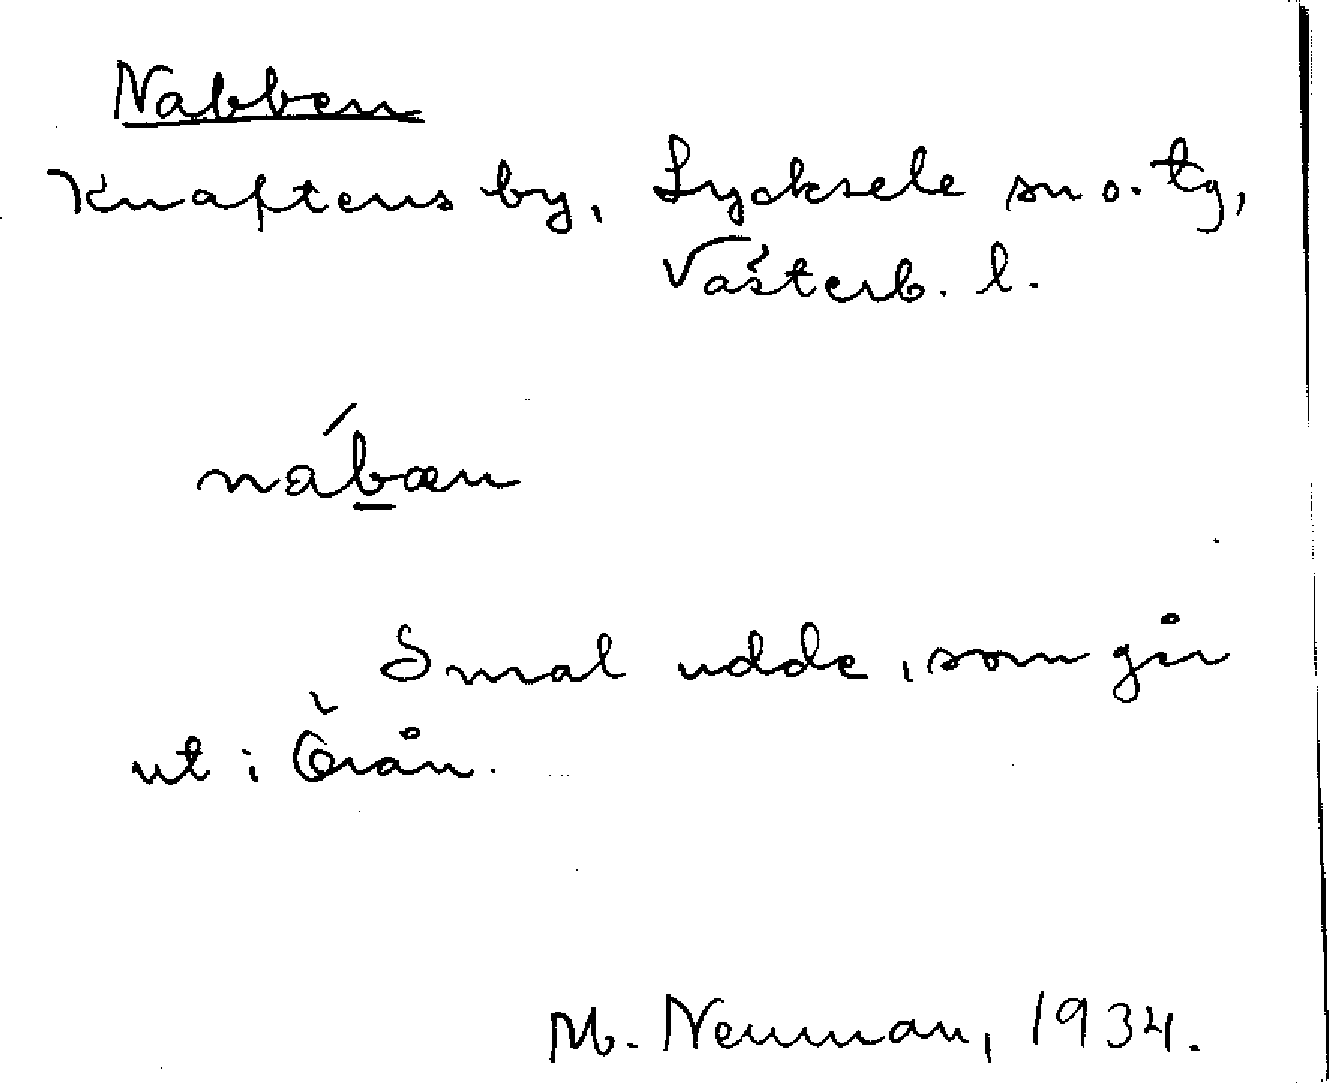 Nabben
Knaftens by, Lycksele sn o. tg,
Västerb. l.
nábæn
Smal udde, som går
ut i Örån.
M. Neuman, 1934.